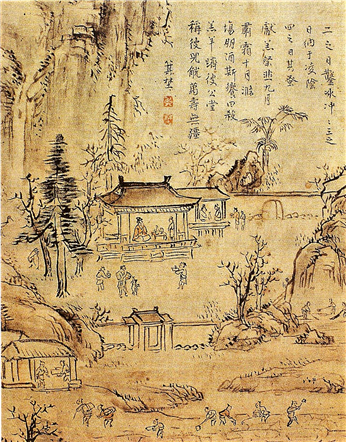 二之日鑿冰冲〻三之
日内于凌陰
四之日其蚤
獻羔祭韭九月
肅霜十月滌
場朋酒斯饗曰殺
羔羊躋彼公堂
稱彼兕觥萬壽無疆
箕埜